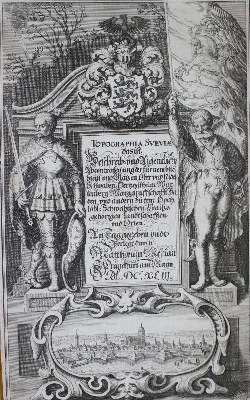 TOPOGRAPHIA SUEVIÆ
das ist
Beschreib: vnd Eigentliche
Abcontrafeitung der fürnembste
Stätt vnd Plätz in Ober vnd Nider
Schwaben, Hertzogthum Würtenberg
Marggraffschafft Baden
vnd andern zu dem Hoch:
lobl: Schwabischen Craiße
gehörigen Landtschafften
vnd Orten.
An Tag gegeben vndt
Verlegt durch
Matthæum Merian
Franckfurt am Mayn